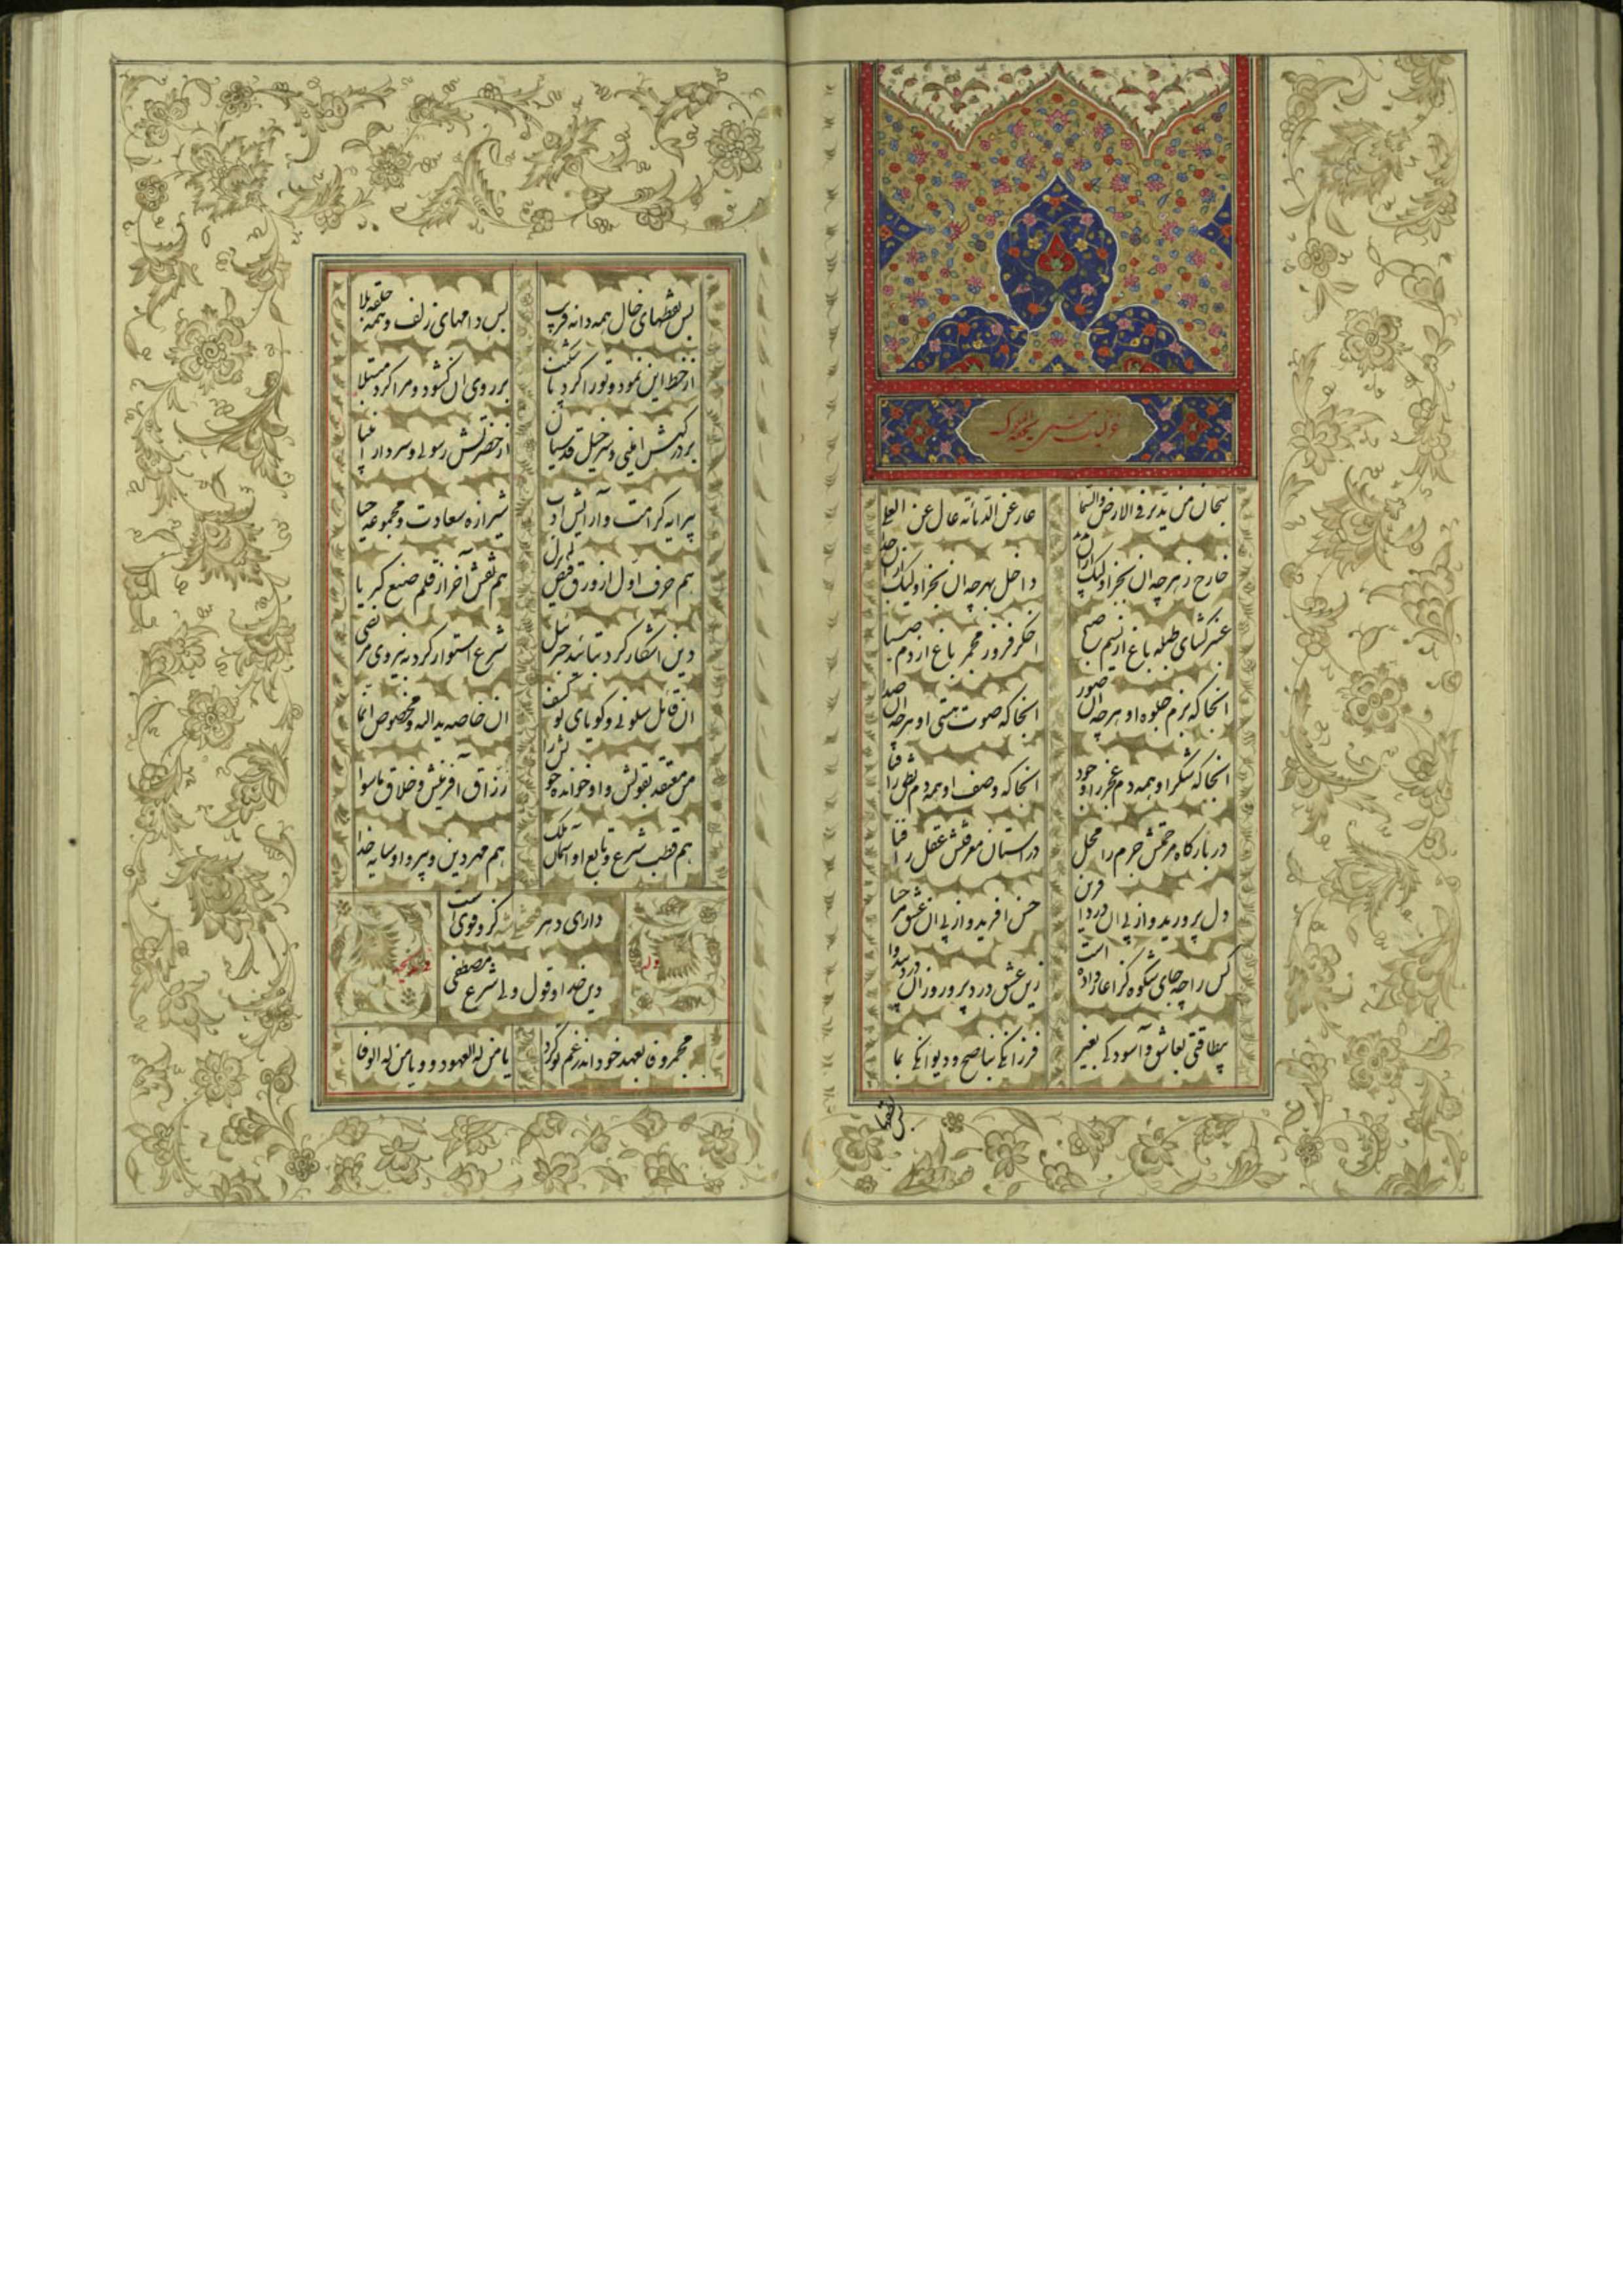 غزلیات
سبحان من یدبر فی الارض والسما
عار عن الدنائه عال عن العلی
خارج ز هر چه آن بجز او لیک
داخل بهر چه آن بجز او لیک
عنبر گشای طبله باغ از نسیم صبح
اخگر فروز مجمر باغ از دم صبا
انجا که بزم جلوه او هر چه آن صور
انجا که صوت هستی او هر چه آن صدا
انجا که شکر او همه دم عجز را وجود
انجا که وصف او همه دم نطق را فنا
در بارگاه مرحمتش جرم را محل
در استان معرفتش عقل را فنا
دل پرورید و از پی آن درد
حسن افرید و از پی آن عشق
کس را چه جای شکوه کز اغاز داده است
زین عشق درد پرور و زان درد
بیطاقتی بعاشق و آسودگی بغیر
فرزانگی بناصح و دیوانگی بما
بس نقطهای خال همه دانه فریب
بس دامهای زلف و همه حلقه بلا
از خط این نمود و تو را کرد
بر روی ان گشود و مرا کرد مبتلا
بر درگهش امینی و سرخیل قدسیان
از حضرتش رسولی و سردار انبیا
پیرایه کرامت و آرایش ادب
شیرازه سعادت و مجموعه حیا
هم حرف اول از ورق فیض لم یزل
هم نقش آخر از قلم صنع کبریا
دین اشکار کرد بتائید جبرئیل
شرع استوار کرد به نیروی مرتضی
ان قائل سلونی و گویای لو کشف
ان خاصه یدالله و مخصوص انما
من معتقد بقولش و او خوانده خویش را
رزاق آفرینش و خلاق ماسوا
هم قطب شرع و تابع او آسمان ملک
هم مهر دین و پیرو او سایه خدا
دارای دهر فتحعلی شه کز و قوی است
دین خدا و قول ولی شرع مصطفی
وله
مجمر وفا بعهد خود اندر غم تو کرد
یا من له العهود و یا من له الوفا